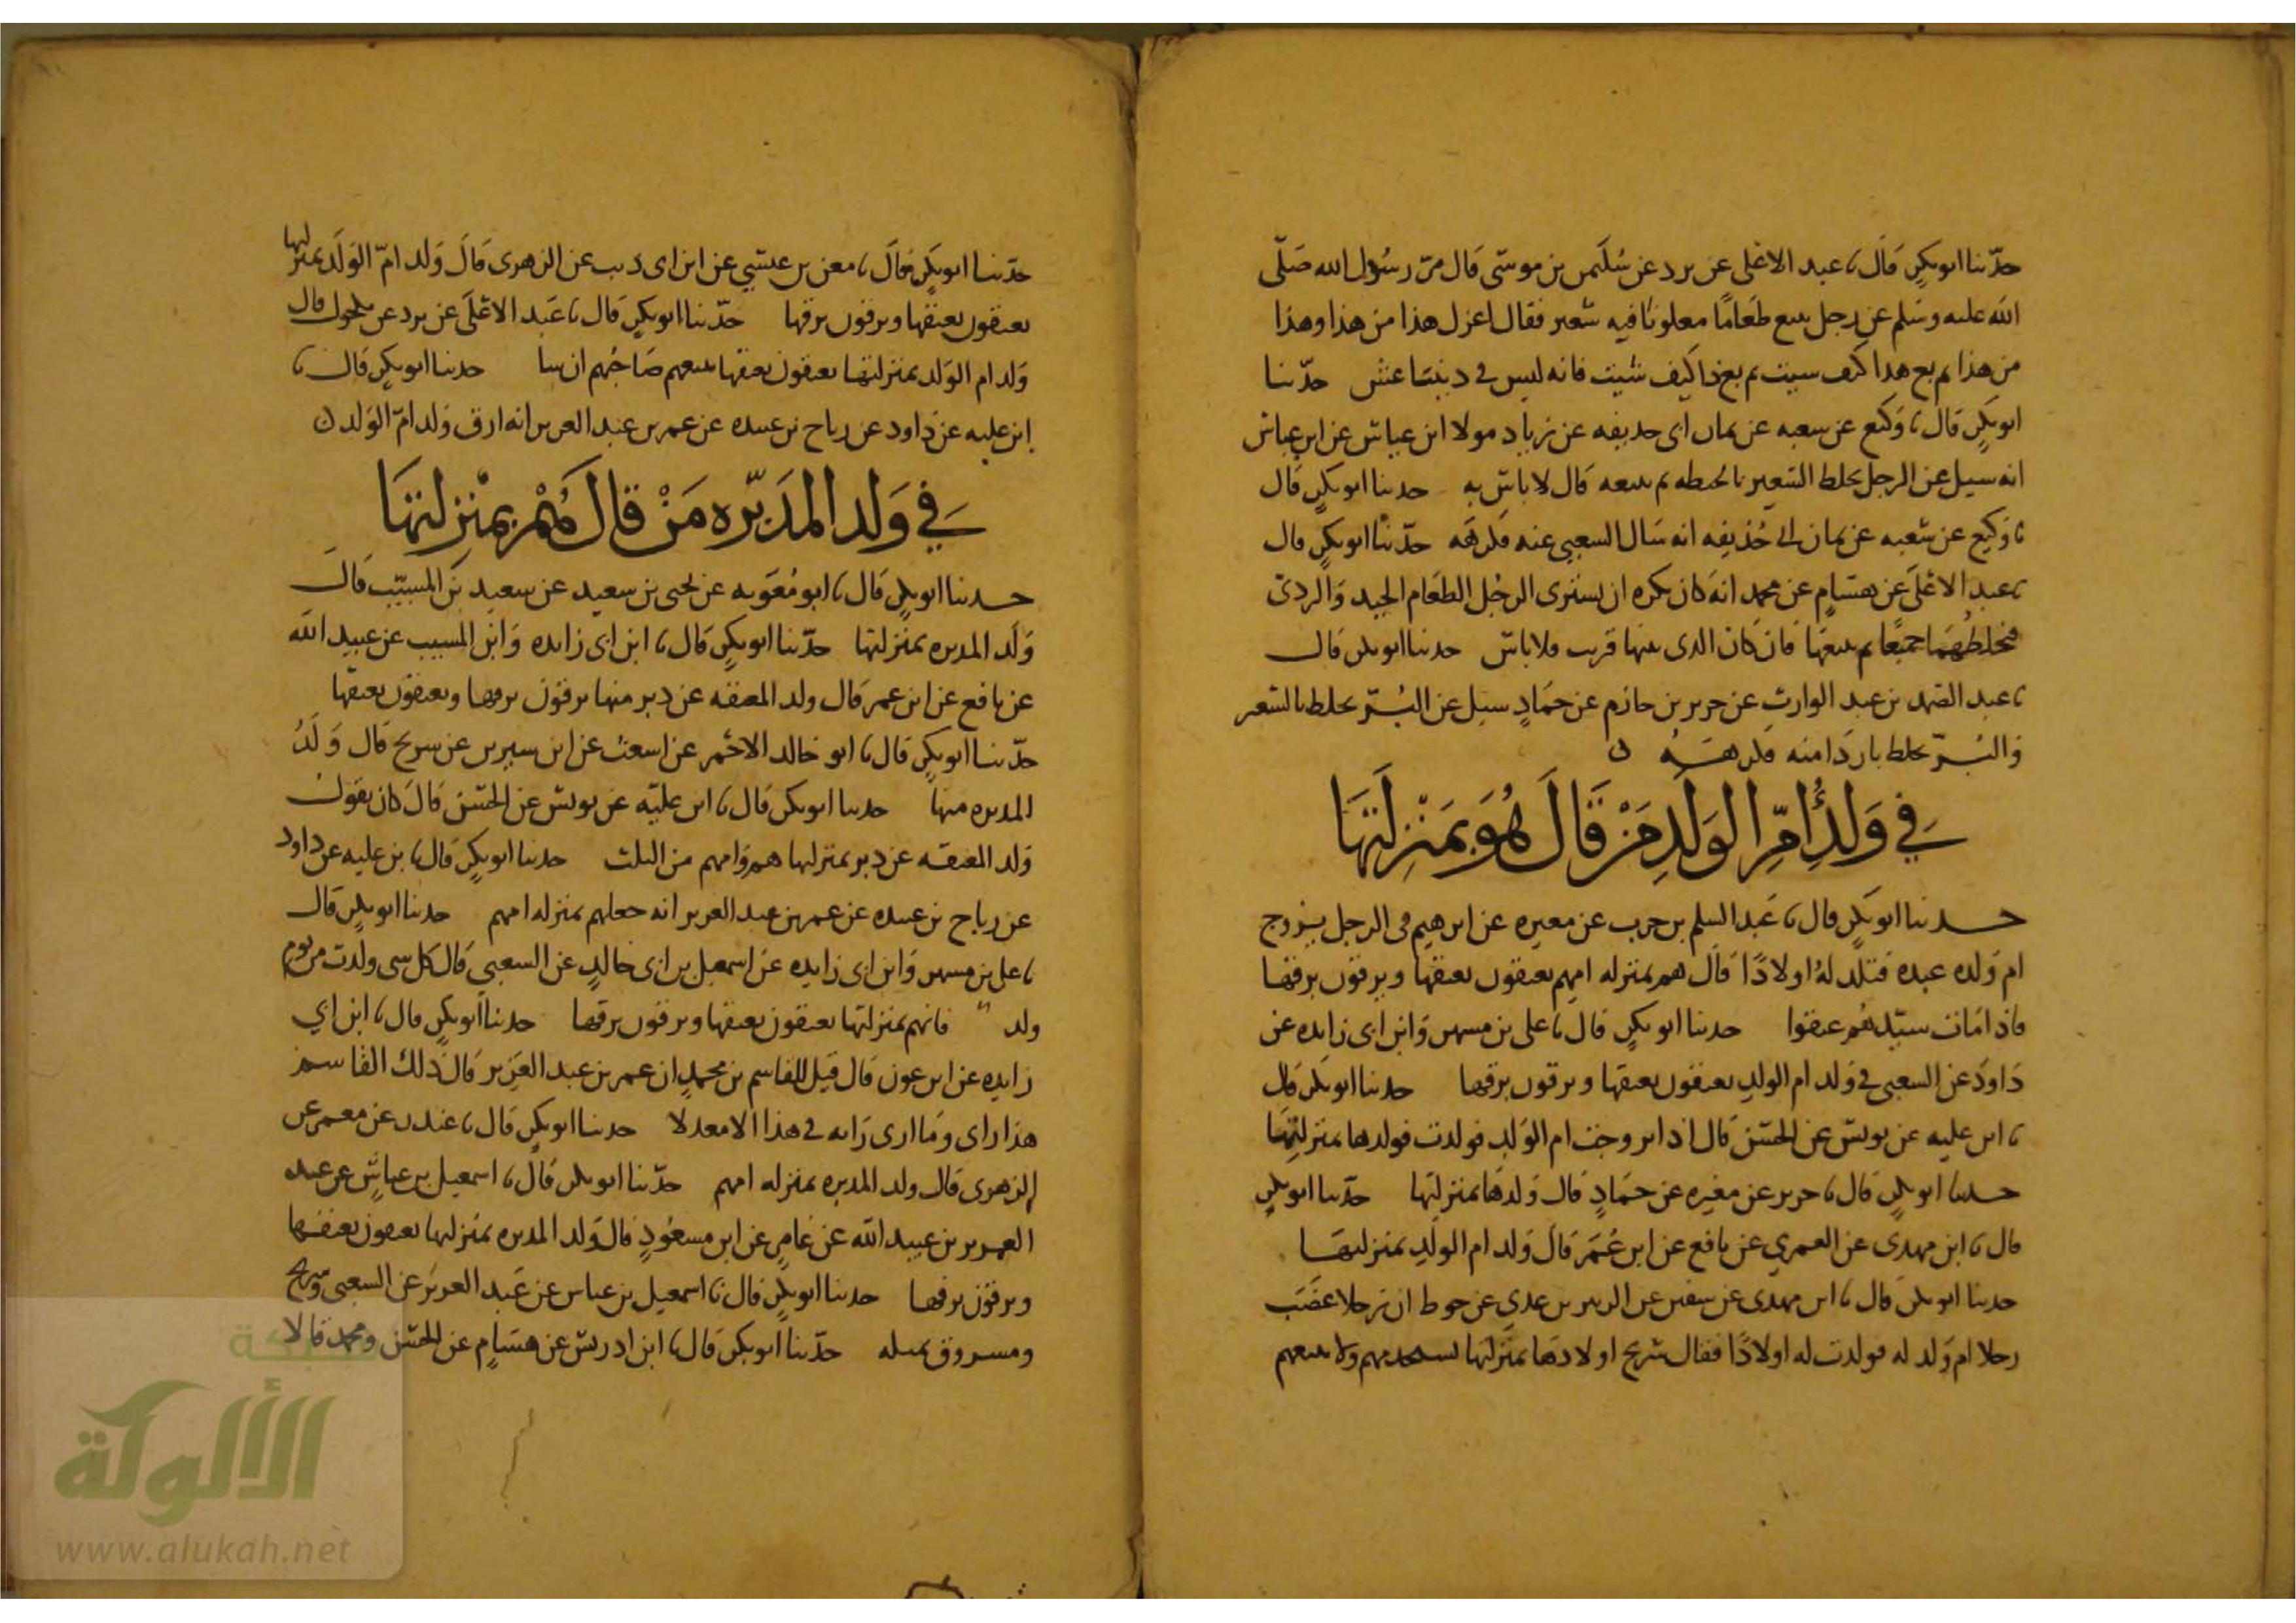 حدثنا ابو بكر قال نا عبد الاعلى عن برد عن سليمن بن موسى قال مر رسول الله صلى
الله عليه وسلم على رجل يبيع طعاما مغلوثا فيه شعير فقال اعزل هذا من هذا وهذا
من هذا ثم بع هذا كيف شيت ثم بع ذا كيف شيت فانه ليس في ديننا غش حدثنا
ابو بكر قال نا وكيع عن شعبه عن يمان ابي حذيفه عن زياد مولا ابن عباس عن ابن عباس
انه سيل عن الرجل يخلط الشعير بالحنطه ثم يبيعه قال لا باس به حدثنا ابو بكر قال
نا وكيع عن شعبه عن يمان ابي حذيفه انه سال الشعبي عنه فكرهه حدثنا ابو بكر قال
نا عبد الاعلى عن هشام عن محمد انه كان يكره ان يشتري الرجل الطعام الجيد والردئ
فيخلطهما جميعا ثم يبيعها فان كان الذي بينها قريب فلا باس حدثنا ابو بكر قال
نا عبد الصمد بن عبد الوارث عن جرير بن حازم عن حماد سيل عن البر يخلط بالشعير
والبر يخلط باردا منه فكرهه
في ولد ام الولد من قال هو بمنزلتها
حدثنا ابو بكر قال نا عبد السلم بن حرب عن مغيره عن ابرهيم في الرجل يزوج
ام ولده عبده فتلد له اولادا قال هم بمنزله امهم يعتقون بعتقها ويرقون برقها
فاذا مات سيدهم عتقوا حدثنا ابو بكر قال نا علي بن مسهر وابن ابي زايده عن
داود عن الشعبي في ولد ام الولد يعتقون بعتقها ويرقون برقها حدثنا ابو بكر قال
نا ابن عليه عن يونس عن الحسن قال اذا تزوجت ام الولد فولدت فولدها بمنزلتها
حدثنا ابو بكر قال نا جرير عن مغيره عن حماد قال ولدها بمنزلتها حدثنا ابو بكر
قال نا ابن مهدي عن العمري عن نافع عن ابن عمر قال ولد ام الولد بمنزلتها
حدثنا ابو بكر قال نا ابن مهدي عن سفين عن الزبير بن عدي عن حوط ان رجلا غصب
رجلا ام ولد له فولدت له اولادا فقال شريح اولادها بمنزلتها يستخدمهم ولا يبيعهم
حدثنا ابو بكر قال نا معن بن عيسى عن ابن ابي ذيب عن الزهري قال ولد ام الولد بمنزلتها
يعتقون بعتقها ويرقون برقها حدثنا ابو بكر قال نا عبد الاعلى عن برد عن مكحول قال
ولد ام الولد بمنزلتها يعتقون بعتقها يبيعهم صاحبهم ان شا حدثنا ابو بكر قال نا
ابن عليه عن داود عن رباح بن عبيده عن عمر بن عبد العزيز انه ارق ولد ام الولد
في ولد المدبره من قال هم بمنزلتها
حدثنا ابو بكر قال نا ابو معويه عن يحيى بن سعيد عن سعيد بن المسيب قال
ولد المدبره بمنزلتها حدثنا ابو بكر قال نا ابن ابي زايده وابن المسيب عن عبيد الله
عن نافع عن ابن عمر قال ولد المعتقه عن دبر منها يرقون برقها ويعتقون بعتقها
حدثنا ابو بكر قال نا ابو خالد الاحمر عن اشعث عن ابن سيرين عن شريح قال ولد
المدبره منها حدثنا ابو بكر قال نا ابن عليه عن يونس عن الحسن قال كان يقول
ولد المعتقه عن دبر بمنزلتها هم وامهم من الثلث حدثنا ابو بكر قال نا بن عليه عن داود
عن رباح بن عبيده عن عمر بن عبد العزيز انه جعلهم بمنزله امهم حدثنا ابو بكر قال
نا علي بن مسهر وابن ابي زايده عن اسمعيل بن ابي خالد عن الشعبي قال كل شي ولدت من يوم
ولد فانهم بمنزلتها يعتقون بعتقها ويرقون برقها حدثنا ابو بكر قال نا ابن ابي
زايده عن ابن عون قال قيل للقاسم بن محمد ان عمر بن عبد العزيز قال ذلك القاسم
هذا راى وما ارى رايه في هذا الا معدلا حدثنا ابو بكر قال نا غندر عن معمر عن
الزهري قال ولد المدبره بمنزله امهم حدثنا ابو بكر قال نا اسمعيل بن عياش عن عبد
العزيز بن عبيد الله عن عامر عن ابن مسعود قال ولد المدبره بمنزلتها يعتقون بعتقها
ويرقون برقها حدثنا ابو بكر قال نا اسمعيل بن عياش عن عبد العزيز عن الشعبي وشريح
ومسروق بمثله حدثنا ابو بكر قال نا ابن ادريس عن هشام عن الحسن ومحمد قالا
شبكة
الألوكة
www.alukah.net